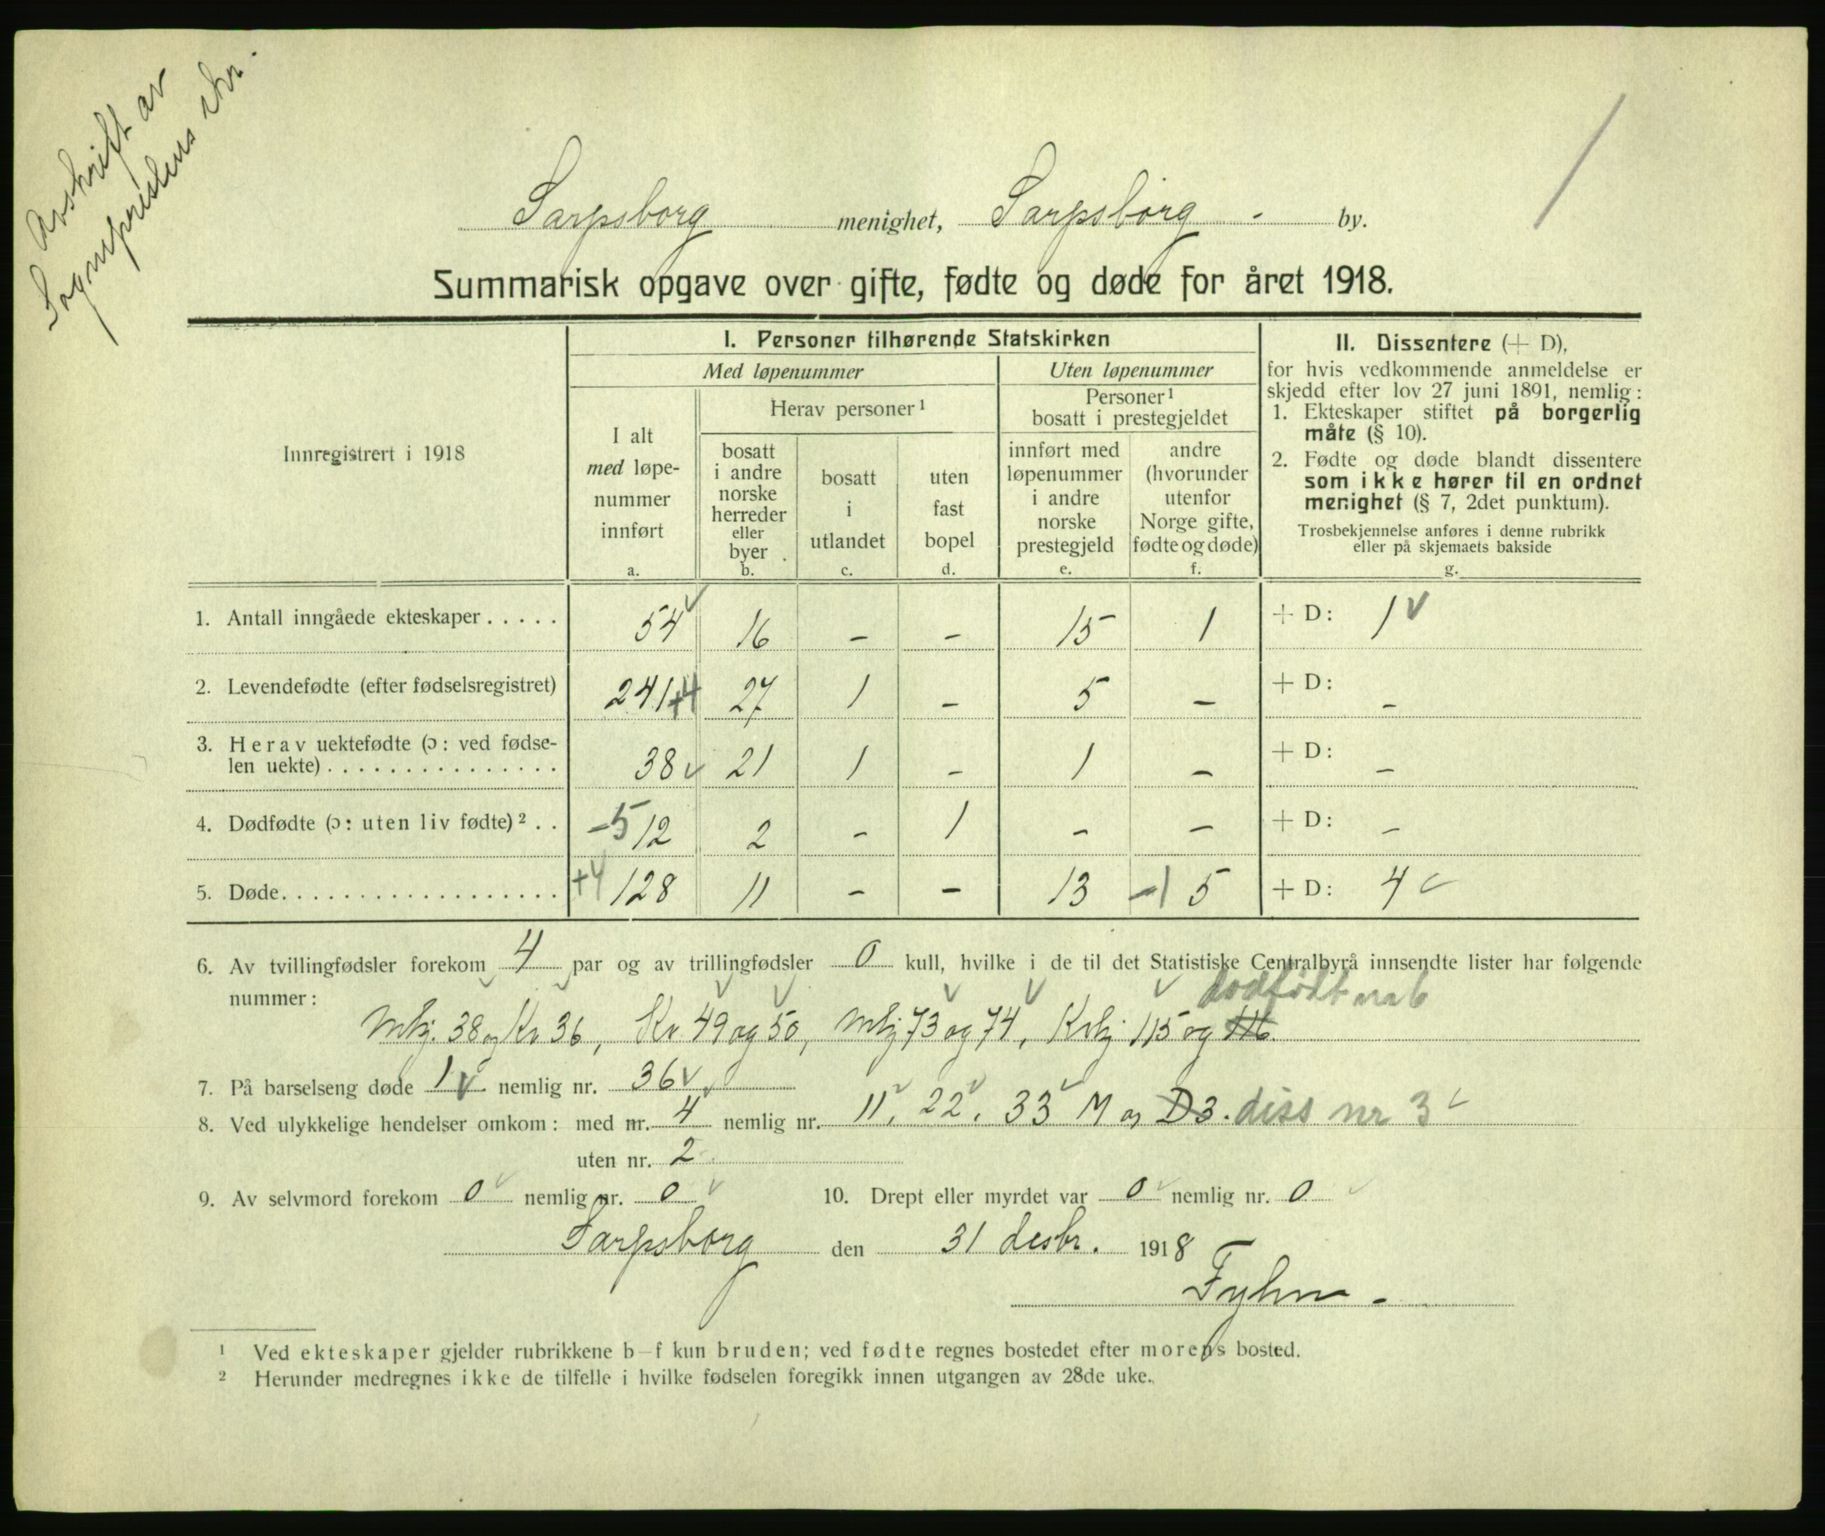 Avskrift av
Sogneprestens skr.
1
Sarpsborg menighet, Sarpsborg - by.
Summarisk opgave over gifte, fødte og døde for året 1918.
Innregistrert i 1918
I. Personer tilhørende Statskirken
Med løpenummer
Uten løpenummer
I alt
med løpe-
nummer
innført
a.
Herav personer ¹
bosatt
i andre
norske
herreder
eller
byer
b.
bosatt
i
utlandet
c.
uten
fast
bopel
d.
Personer ¹
bosatt i prestegjeldet
innført med
løpenummer
i andre
norske
prestegjeld
e.
andre
(hvorunder
utenfor
Norge gifte,
fødte og døde)
f.
II. Dissentere (+ D),
for hvis vedkommende anmeldelse er
skjedd efter lov 27 juni 1891, nemlig:
1. Ekteskaper stiftet på borgerlig
måte (§ 10).
2. Fødte og døde blandt dissentere
som ikke hører til en ordnet
menighet (§ 7, 2det punktum).
Trosbekjennelse anføres i denne rubrikk
eller på skjemaets bakside
g.
1. Antall inngåede ekteskaper . . . . . 54 ✓ 16 – – 15 1 + D: 1 ✓
2. Levendefødte (efter fødselsregistret) 241 +4 27 1 – 5 – + D: –
3. Herav uektefødte (ɔ: ved fødse-
len uekte) . . . . . . . . . . . . . . . 38 ✓ 21 1 – 1 – + D: –
4. Dødfødte (ɔ: uten liv fødte) ² . . –5 12 2 – 1 – – + D: –
5. Døde. . . . . . . . . . . . . . . . . . +4 128 11 – – 13 –1 5 + D: 4 ✓
6. Av tvillingfødsler forekom 4 par og av trillingfødsler 0 kull, hvilke i de til det Statistiske Centralbyrå innsendte lister har følgende
nummer: dødfødt nr 6
Mkj. 38 og Kv 36, Kv 49 og 50, Mkj 73 og 74, Kvkj 115 og 116.
7. På barselseng døde 1 ✓ nemlig nr. 36 ✓
8. Ved ulykkelige hendelser omkom: med nr. 4 nemlig nr. 11, 22, 33 M og D3. diss nr 3 ✓
uten nr. 2
9. Av selvmord forekom 0 ✓ nemlig nr. 0 ✓ 10. Drept eller myrdet var 0 ✓ nemlig nr. 0 ✓
Sarpsborg den 31 desbr. 1918
Fyhn -
¹ Ved ekteskaper gjelder rubrikkene b–f kun bruden; ved fødte regnes bostedet efter morens bosted.
² Herunder medregnes ikke de tilfelle i hvilke fødselen foregikk innen utgangen av 28de uke.